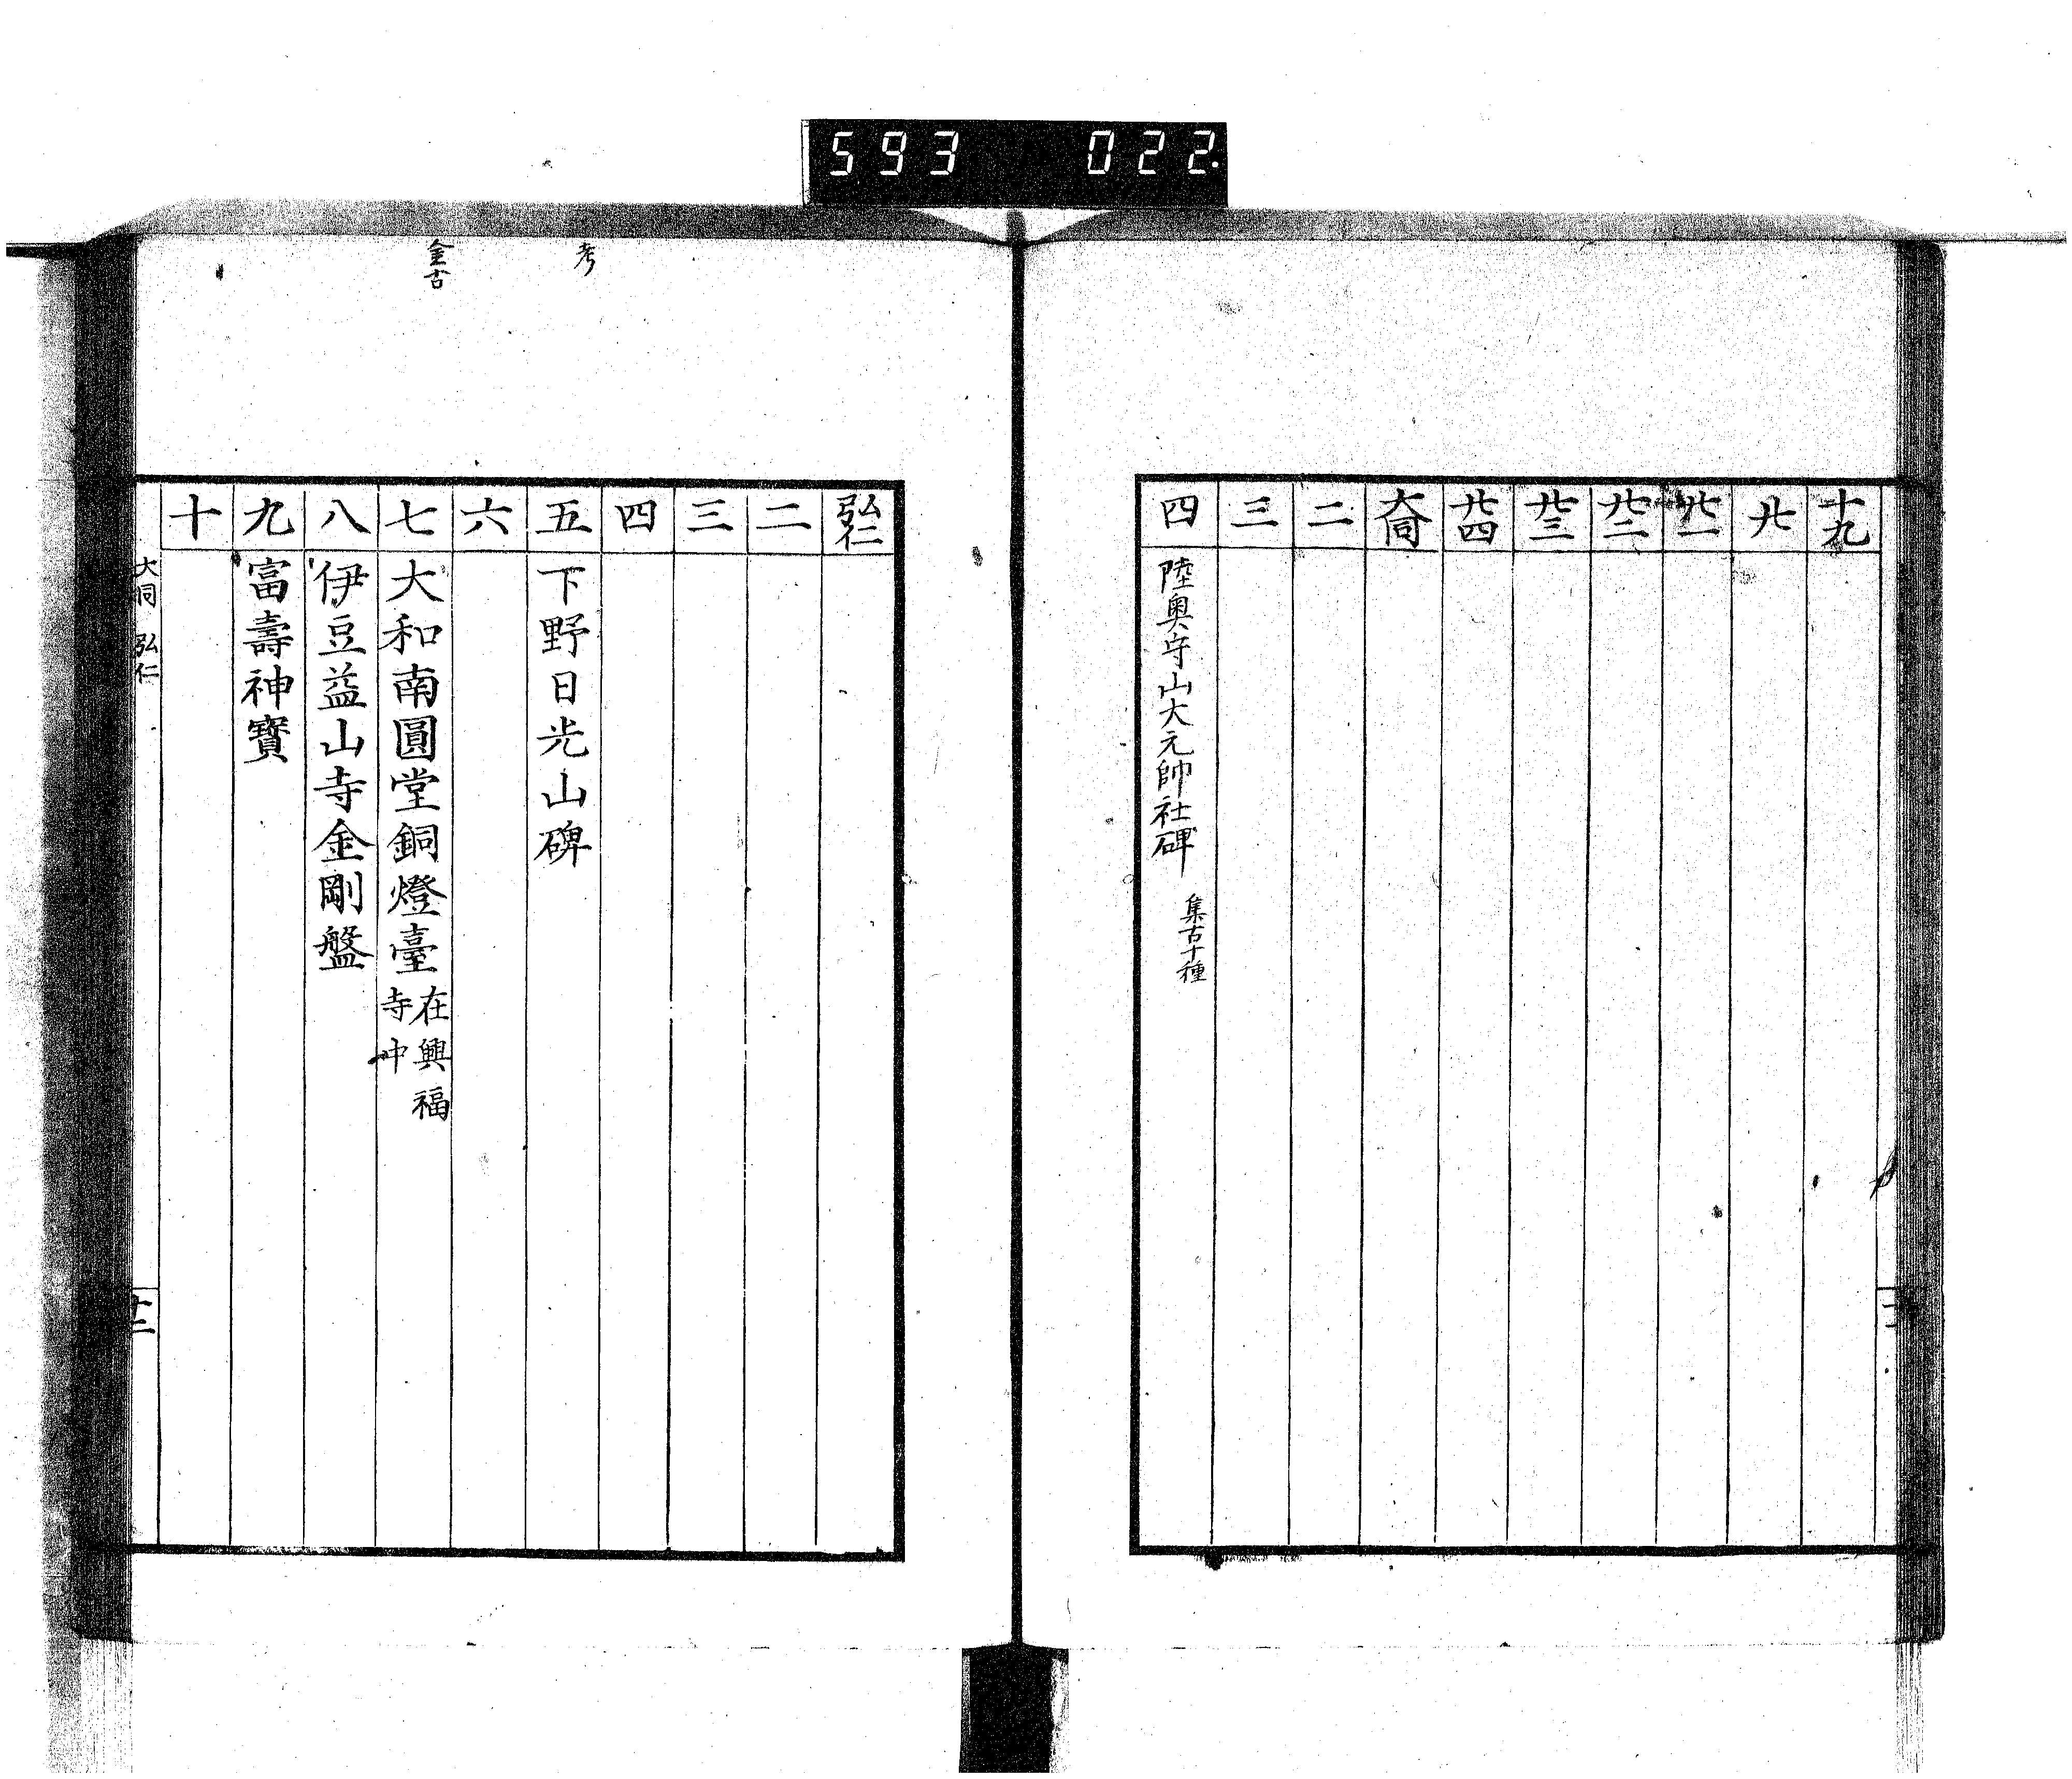 593 022
十九
廿
廿一
廿二
廿三
廿四
大同
二
三
四
陸奥守山大元帥社碑 集古十種
考
金古
弘仁
二
三
四
五
下野日光山碑
六
七
大和南圓堂銅燈臺 在興福
寺中
八
伊豆益山寺金剛盤
九
富壽神寶
十
大同 弘仁
十二